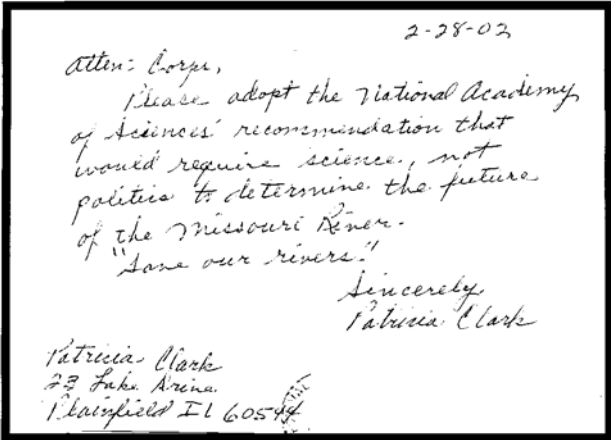 2-28-02
Atten: Corps,
Please adopt the National Academy
of Sciences' recommendation that
would require science, not
politics to determine the future
of the Missouri River.
"Save our rivers!"
Sincerely,
Patricia Clark
Patricia Clark
23 Lake Drive
Plainfield IL 60544